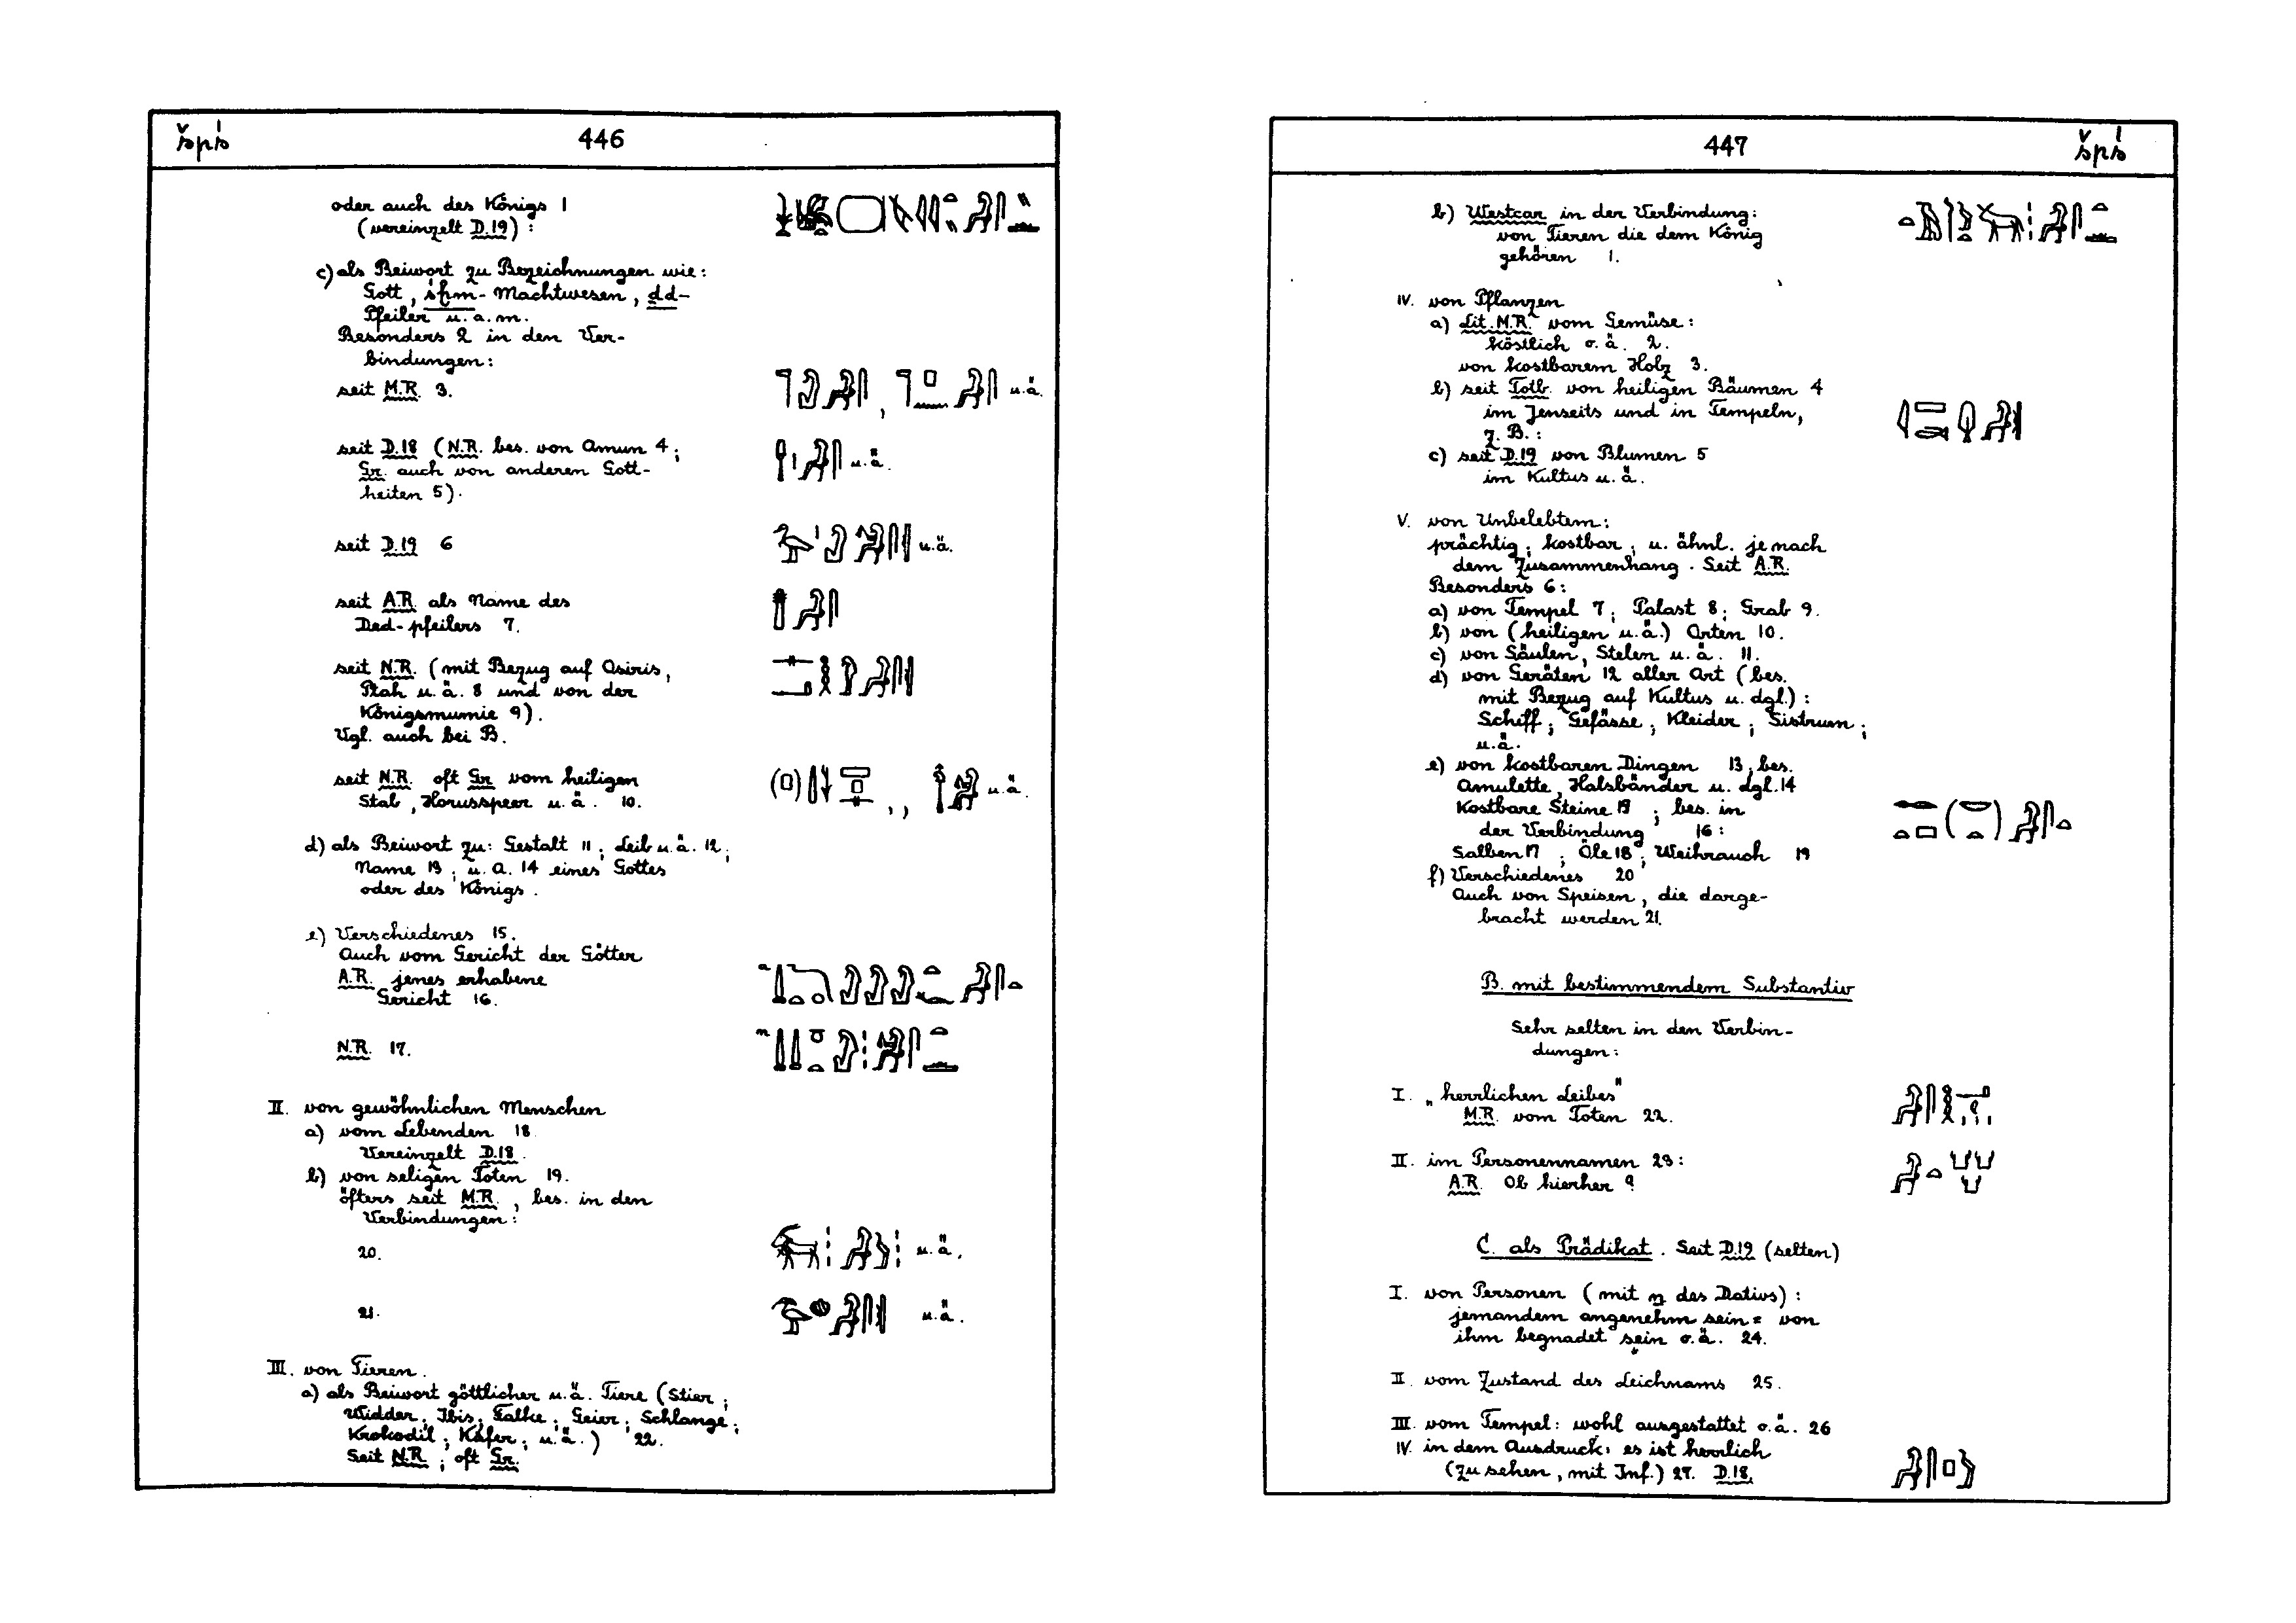 špś
446
oder auch des Königs 1
(vereinzelt D.19):
c) als Beiwort zu Bezeichnungen wie:
Gott, śḫm-Machtwesen, ḏd-
Pfeiler u.a.m.
Besonders 2 in den Ver-
bindungen:
seit M.R. 3.
u.ä.
seit D.18 (N.R. bes. von Amun 4;
u.ä.
Gr. auch von anderen Gott-
heiten 5).
seit D.19 6
u.ä.
seit A.R. als Name des
Ded-pfeilers 7.
seit N.R. (mit Bezug auf Osiris,
Ptah u.ä. 8 und von der
Königsmumie 9).
Vgl. auch bei B.
seit N.R. oft Gr. vom heiligen
Stab, Horusspeer u.ä. 10.
u.ä.
d) als Beiwort zu: Gestalt 11; Leib u.ä. 12;
Name 13; u.a. 14 eines Gottes
oder des Königs.
e) Verschiedenes 15.
Auch vom Gericht der Götter
A.R. jenes erhabene
Gericht 16.
a
N.R. 17.
n
II. von gewöhnlichen Menschen
a) vom Lebenden 18
Vereinzelt D.18.
b) von seligen Toten 19.
öfters seit M.R., bes. in den
Verbindungen:
20.
u.ä.
21.
u.ä.
III. von Tieren.
a) als Beiwort göttlicher u.ä. Tiere (Stier;
Widder; Ibis; Falke; Geier; Schlange;
Krokodil; Käfer; u.ä.) 22.
Seit N.R.; oft Gr.
447
špś
b) Westcar in der Verbindung:
von Tieren die dem König
gehören 1.
IV. von Pflanzen
a) Lit. M.R. vom Gemüse:
köstlich o.ä. 2.
von kostbarem Holz 3.
b) seit Totb. von heiligen Bäumen 4
im Jenseits und in Tempeln,
z.B.:
c) seit D.19 von Blumen 5
im Kultus u.ä.
V. von Unbelebtem:
prächtig; kostbar; u. ähnl. je nach
dem Zusammenhang. Seit A.R.
Besonders 6:
a) von Tempel 7; Palast 8; Grab 9.
b) von (heiligen u.ä.) Orten 10.
c) von Säulen, Stelen u.ä. 11.
d) von Geräten 12 aller Art (bes.
mit Bezug auf Kultus u. dgl.):
Schiff; Gefässe; Kleider; Sistrum;
u.ä.
e) von kostbaren Dingen 13, bes.
Amulette, Halsbänder u. dgl. 14
Kostbare Steine 15; bes. in
der Verbindung 16:
Salben 17; Öle 18; Weihrauch 19
f) Verschiedenes 20
Auch von Speisen, die darge-
bracht werden 21.
B. mit bestimmendem Substantiv
Sehr selten in den Verbin-
dungen:
I. „herrlichen Leibes"
M.R. vom Toten 22.
II. im Personennamen 23:
A.R. Ob hierher?
C. als Prädikat. Seit D.19 (selten)
I. von Personen (mit n des Dativs):
jemandem angenehm sein = von
ihm begnadet sein o.ä. 24.
II. vom Zustand des Leichnams 25.
III. vom Tempel: wohl ausgestattet o.ä. 26
IV. in dem Ausdruck: es ist herrlich
(zu sehen, mit Inf.) 27. D.18.